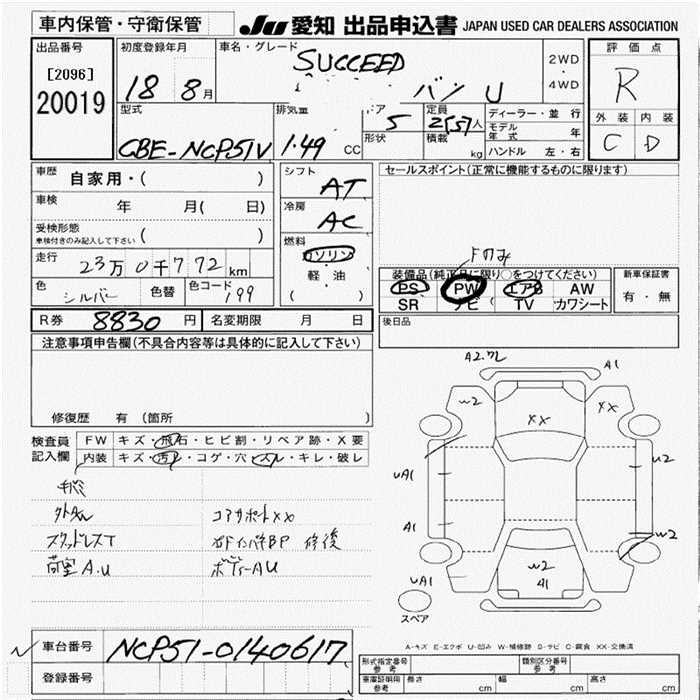 車内保管・守衛保管
JU 愛知 出品申込書 JAPAN USED CAR DEALERS ASSOCIATION
出品番号
[2096]
20019
初度登録年月
18 8月
車名・グレード
SUCCEED
バン U
2WD
・
4WD
評価点
R
外装 内装
C D
型式
CBE-NCP51V
排気量
1.49 CC
ドア
5
形状
定員
2(5)人
積載
kg
ディーラー・並行
モデル年式 年
ハンドル 左・右
車歴
自家用・( )
車検
年 月( 日)
受検形態
車検付きのみ記入して下さい
( )
走行
23万0千772km
色
シルバー
色替
色コード
199
シフト
AT
冷房
AC
燃料
ガソリン
軽油
セールスポイント(正常に機能するものに限ります)
Fのみ
装備品(純正品に限り○をつけてください)
PS PW エアB AW
SR ナビ TV カワシート
新車保証書
有・無
R券 8830円
名変期限 月 日
後日品
注意事項申告欄(不具合内容等は具体的に記入して下さい)
修復歴 有(箇所 )
検査員記入欄
FW キズ・飛石・ヒビ割・リペア跡・X要
内装 キズ・汚レ・コゲ・穴・スレ・キレ・破レ
外AW
コアサポートXX
スタッドレスT
修後
荷室A.U
ボディーAU
A2.ワレ
A1
W2
XX
XX
UA1
U2
A1
W2
W2
41
UA1
スペア
A-キズ E-エクボ U-凹み W-補修跡 S-サビ C-腐食 XX-交換済
車台番号
NCP51-0140617
登録番号
型式指定番号
参考
類別区分番号
参考
車庫証明用
参考
長さ cm
幅 cm
高さ cm